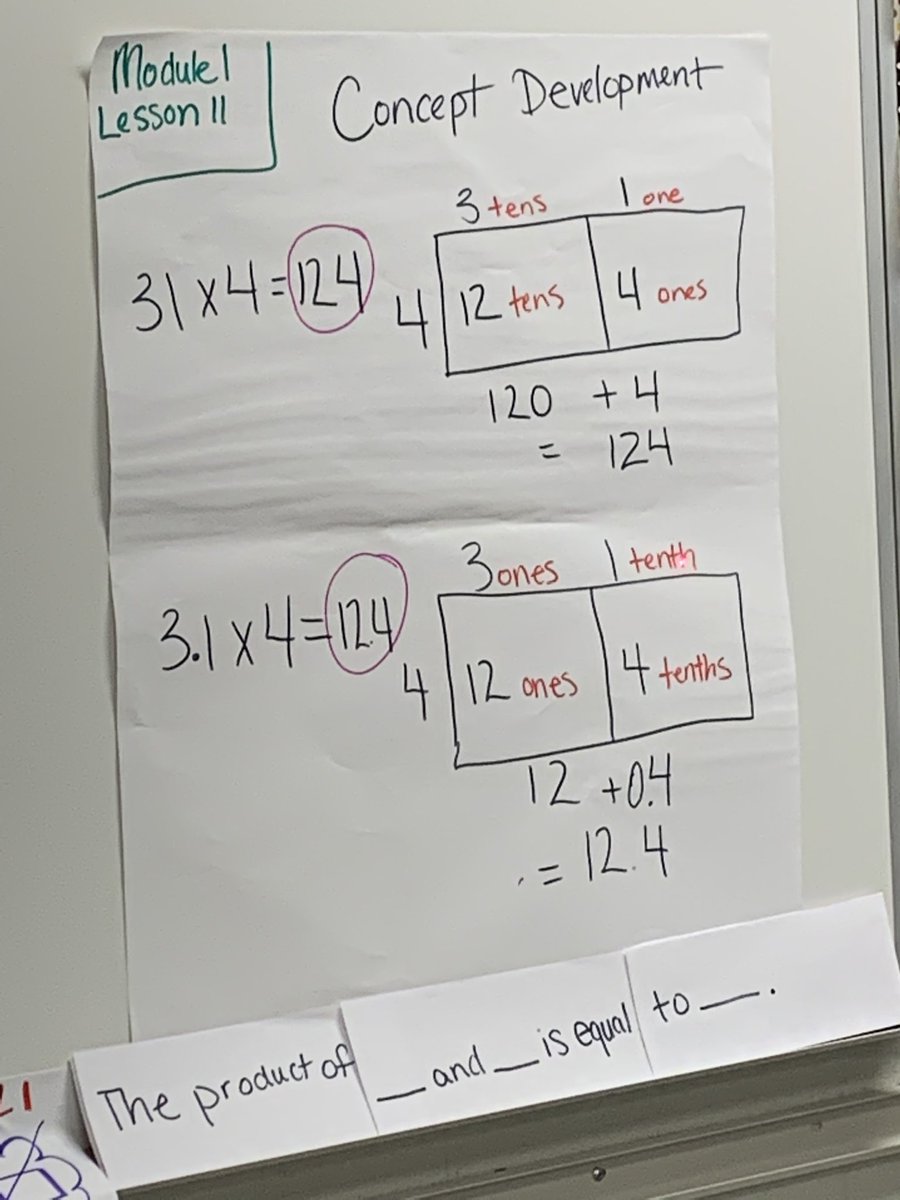 Module 1
Lesson 11
Concept Development
3 tens 1 one
31 x 4 = 124
4 12 tens 4 ones
120 + 4
= 124
3 ones 1 tenth
3.1 x 4 = 12.4
4 12 ones 4 tenths
12 + 0.4
= 12.4
The product of __ and __ is equal to __.